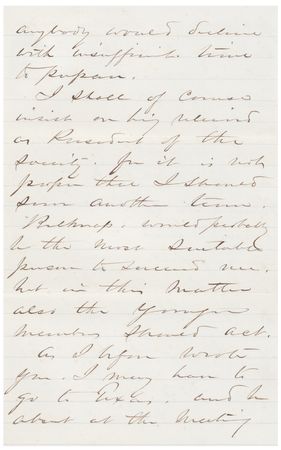 anybody would decline
with insufficient time
to prepare.
I shall of course
insist on being relieved
as President of the
society. for it is not
proper that I should
serve another term.
Belknap. would probably
be the most suitable
person to succeed me,
but in this matter
also the younger
members should act.
As I before wrote
you. I may have to
go to Texas. and be
about at the meeting